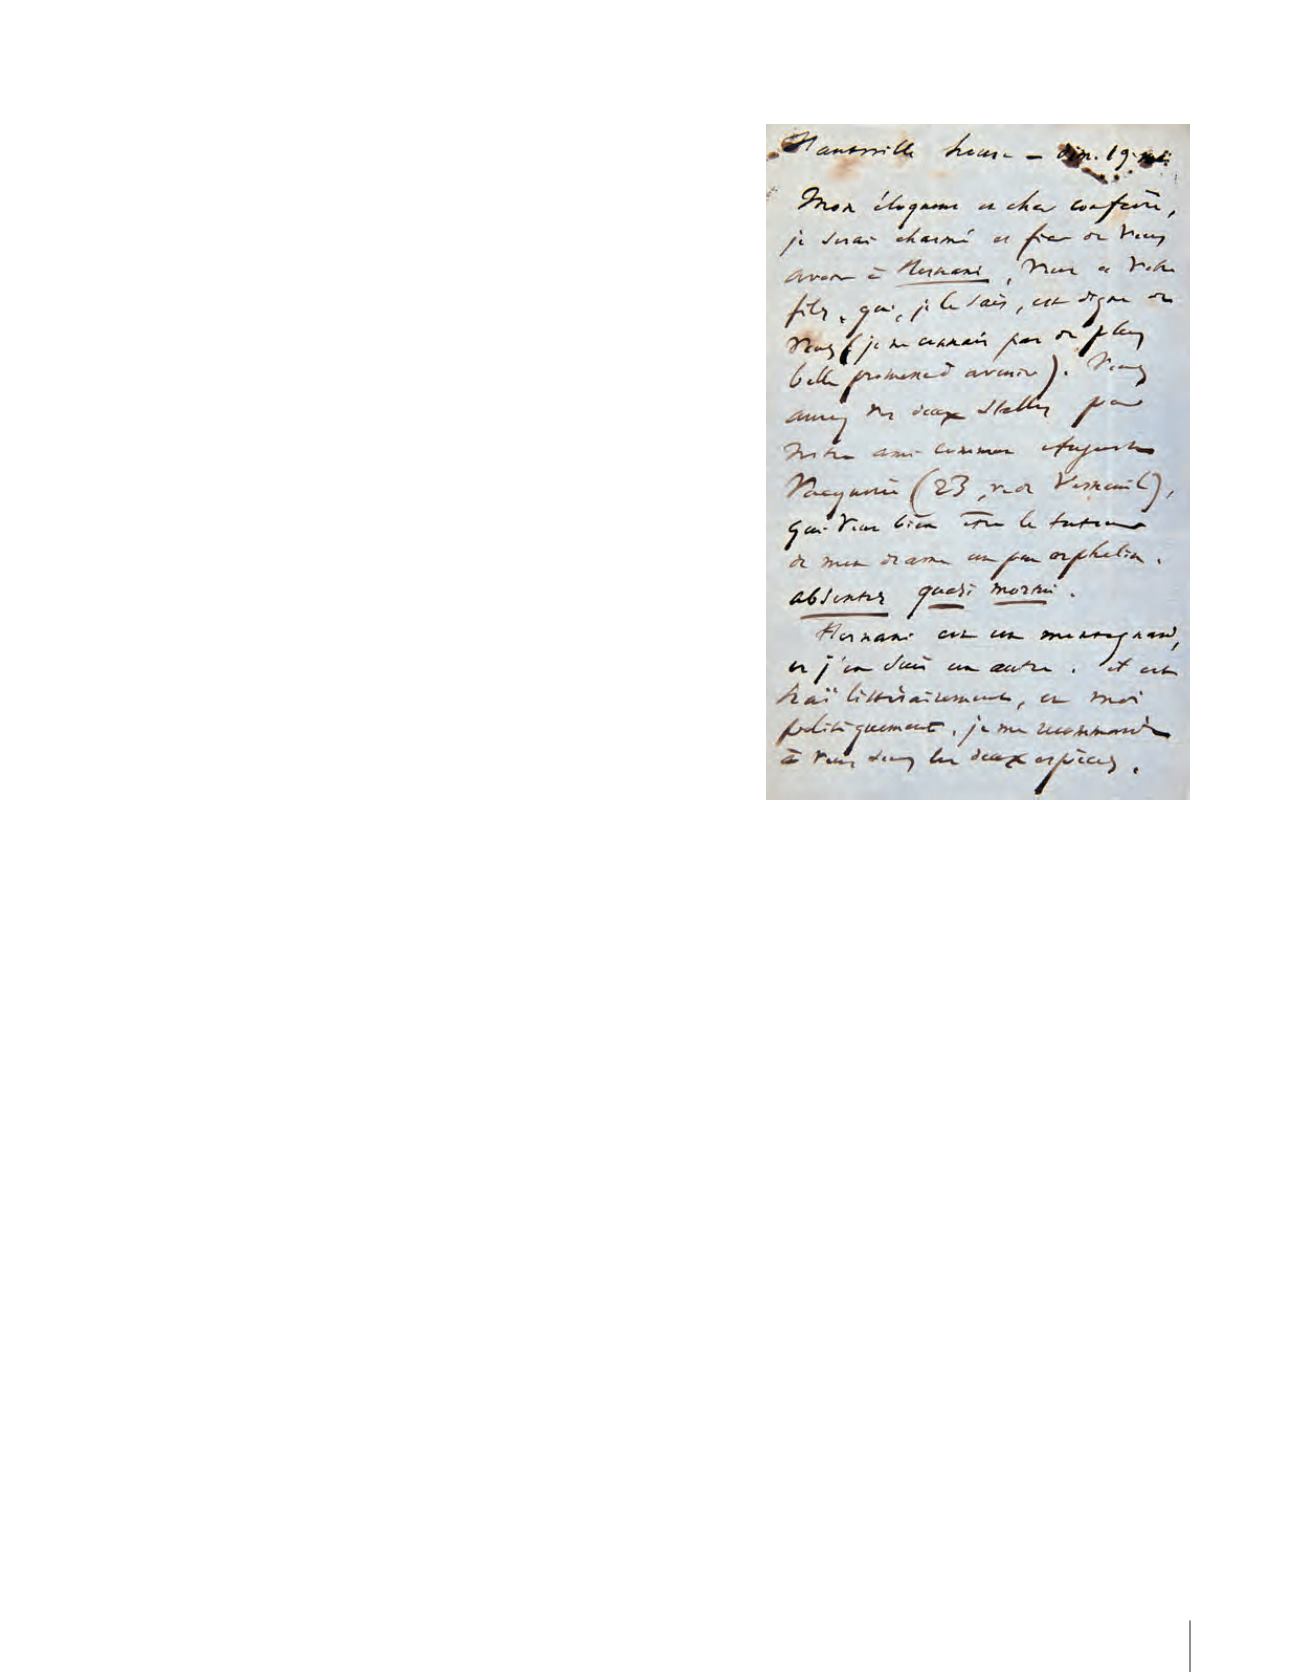 Hauteville house – dim. 19 mai
Mon éloquent et cher confrère,
je serai charmé et fier de vous
avoir à Hernani, vous et votre
fils, qui, je le sais, est digne de
vous (je ne connais pas de plus
belle promesse d'avenir). Vous
aurez vos deux stalles par
notre ami commun Auguste
Vacquerie (23, rue de Verneuil),
qui veut bien être le tuteur
de mon drame un peu orphelin.
absentes quasi mortui.
Hernani est un montagnard,
et j'en suis un autre. il est
haï littérairement, et moi
politiquement. je me recommande
à vous sous les deux espèces.